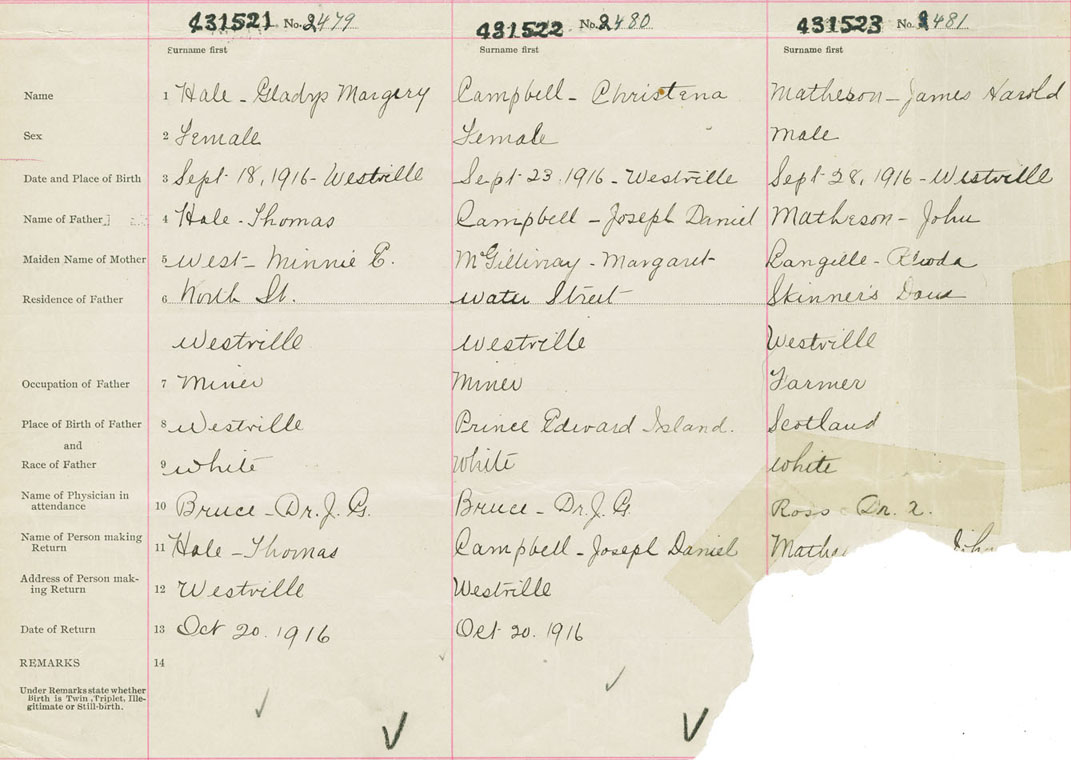 431521 No. 2479 431522 No. 2480 431523 No. 2481
Surname first Surname first Surname first
Name 1 Hale - Gladys Margery Campbell - Christena Matheson - James Harold
Sex 2 Female Female Male
Date and Place of Birth 3 Sept 18, 1916 - Westville Sept 23, 1916 - Westville Sept 28, 1916 - Westville
Name of Father 4 Hale - Thomas Campbell - Joseph Daniel Matheson - John
Maiden Name of Mother 5 West - Minnie E. McGillivray - Margaret Langille - Rhoda
Residence of Father 6 North St. Water Street Skinner's
Westville Westville Westville
Occupation of Father 7 Miner Miner Farmer
Place of Birth of Father 8 Westville Prince Edward Island. Scotland
and
Race of Father 9 White White White
Name of Physician in
attendance 10 Bruce - Dr. J. G. Bruce - Dr. J. G. Ross Dr.
Name of Person making
Return 11 Hale - Thomas Campbell - Joseph Daniel Mathe John
Address of Person mak-
ing Return 12 Westville Westville
Date of Return 13 Oct 20. 1916 Oct 20. 1916
REMARKS 14
Under Remarks state whether
Birth is Twin, Triplet, Ille-
gitimate or Still-birth.